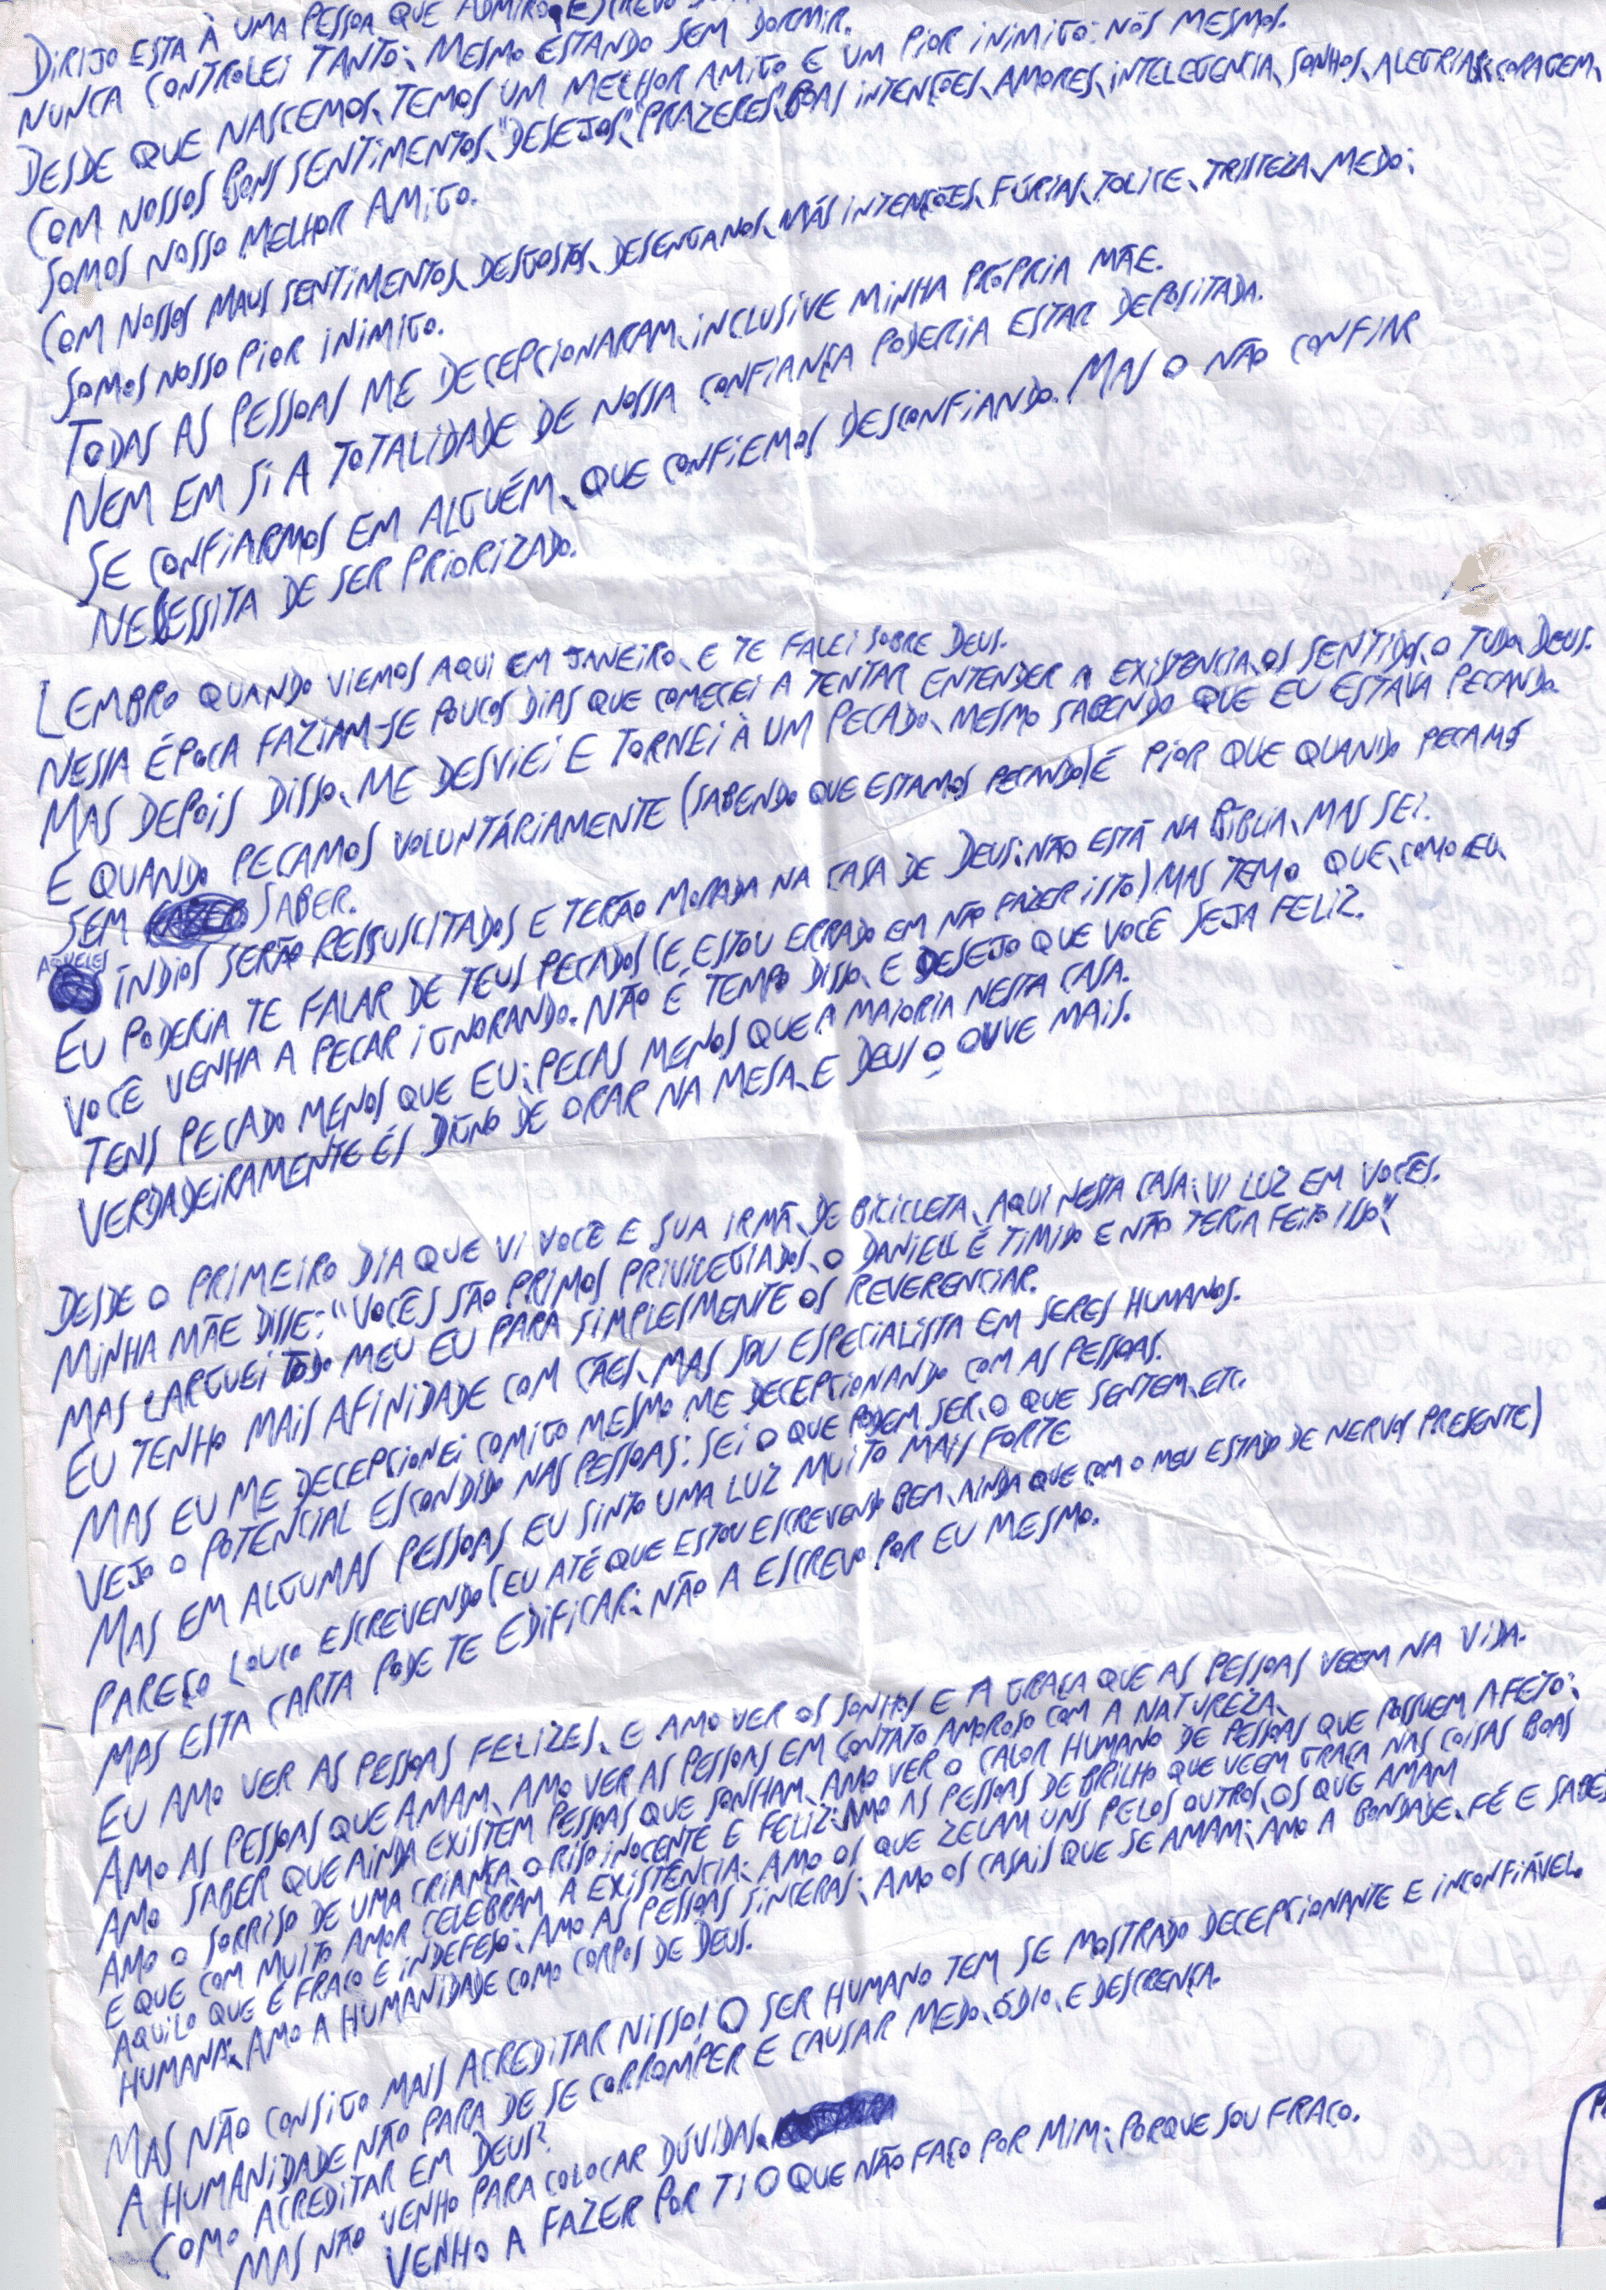 DIRIJO ESTA À UMA PESSOA QUE ADMIRO, ESCREVO
NUNCA CONTROLEI TANTO; MESMO ESTANDO SEM DORMIR.
DESDE QUE NASCEMOS, TEMOS UM MELHOR AMIGO E UM PIOR INIMIGO: NÓS MESMOS.
COM NOSSOS BONS SENTIMENTOS, "DESEJOS", PRAZERES, BOAS INTENÇÕES, AMORES, INTELEGENCIA, SONHOS, ALEGRIAS, CORAGEM,
SOMOS NOSSO MELHOR AMIGO.
COM NOSSOS MAUS SENTIMENTOS, DESGOSTOS, DESENGANOS, MÁS INTENÇÕES, FÚRIAS, TOLICE, TRISTEZA, MEDO;
SOMOS NOSSO PIOR INIMIGO.
TODAS AS PESSOAS ME DECEPCIONARAM, INCLUSIVE MINHA PRÓPRIA MÃE.
NEM EM SI A TOTALIDADE DE NOSSA CONFIANÇA PODERIA ESTAR DEPOSITADA.
SE CONFIARMOS EM ALGUÉM, QUE CONFIEMOS DESCONFIANDO. MAS O NÃO CONFIAR
NECESSITA DE SER PRIORIZADO.
LEMBRO QUANDO VIEMOS AQUI EM JANEIRO, E TE FALEI SOBRE DEUS.
NESSA ÉPOCA FAZIAM-SE POUCOS DIAS QUE COMECEI A TENTAR ENTENDER A EXISTENCIA, OS SENTIDOS, O TUDO, DEUS.
MAS DEPOIS DISSO, ME DESVIEI E TORNEI À UM PECADO, MESMO SABENDO QUE EU ESTAVA PECANDO.
E QUANDO PECAMOS VOLUNTÁRIAMENTE (SABENDO QUE ESTAMOS PECANDO) É PIOR QUE QUANDO PECAMOS
SEM SABER.
AQUELES ÍNDIOS SERÃO RESSUSCITADOS E TERÃO MORADA NA CASA DE DEUS; NÃO ESTÁ NA BÍBLIA, MAS SEI.
EU PODERIA TE FALAR DE TEUS PECADOS (E ESTOU ERRADO EM NÃO FAZER ISTO) MAS TEMO QUE, COMO EU,
VOCÊ VENHA A PECAR IGNORANDO. NÃO É TEMPO DISSO, E DESEJO QUE VOCÊ SEJA FELIZ.
TENS PECADO MENOS QUE EU; PECAS MENOS QUE A MAIORIA NESTA CASA.
VERDADEIRAMENTE ÉS DIGNO DE ORAR NA MESA, E DEUS O OUVE MAIS.
DESDE O PRIMEIRO DIA QUE VI VOCÊ E SUA IRMÃ, DE BICICLETA, AQUI NESTA CASA; VI LUZ EM VOCÊS.
MINHA MÃE DISSE: "VOCÊS SÃO PRIMOS PRIVILEGIADOS, O DANIELL É TIMIDO E NÃO TERIA FEITO ISSO"
MAS LARGUEI TODO MEU EU PARA SIMPLESMENTE OS REVERENCIAR.
EU TENHO MAIS AFINIDADE COM CÃES, MAS SOU ESPECIALISTA EM SERES HUMANOS.
MAS EU ME DECEPCIONEI COMIGO MESMO ME DECEPCIONANDO COM AS PESSOAS.
VEJO O POTENCIAL ESCONDIDO NAS PESSOAS: SEI O QUE PODEM SER, O QUE SENTEM, ETC.
MAS EM ALGUMAS PESSOAS EU SINTO UMA LUZ MUITO MAIS FORTE
PAREÇO LOUCO ESCREVENDO (EU ATÉ QUE ESTOU ESCREVENDO BEM, AINDA QUE COM O MEU ESTADO DE NERVOS PRESENTE)
MAS ESTA CARTA PODE TE EDIFICAR; NÃO A ESCREVO POR EU MESMO.
EU AMO VER AS PESSOAS FELIZES, E AMO VER OS SONHOS E A GRAÇA QUE AS PESSOAS VEEM NA VIDA.
AMO AS PESSOAS QUE AMAM, AMO VER AS PESSOAS EM CONTATO AMOROSO COM A NATUREZA,
AMO SABER QUE AINDA EXISTEM PESSOAS QUE SONHAM, AMO VER O CALOR HUMANO DE PESSOAS QUE POSSUEM AFETO;
AMO O SORRISO DE UMA CRIANÇA, O RISO INOCENTE E FELIZ; AMO AS PESSOAS DE BRILHO QUE VEEM GRAÇA NAS COISAS BOAS
E QUE COM MUITO AMOR CELEBRAM A EXISTÊNCIA; AMO OS QUE ZELAM UNS PELOS OUTROS, OS QUE AMAM
AQUILO QUE É FRACO E INDEFESO; AMO AS PESSOAS SINCERAS; AMO OS CASAIS QUE SE AMAM; AMO A BONDADE, FÉ E
HUMANA; AMO A HUMANIDADE COMO CORPOS DE DEUS.
MAS NÃO CONSIGO MAIS ACREDITAR NISSO! O SER HUMANO TEM SE MOSTRADO DECEPCIONANTE E INCONFIÁVEL.
A HUMANIDADE NÃO PARA DE SE CORROMPER E CAUSAR MEDO, ÓDIO, E DESCRENÇA.
COMO ACREDITAR EM DEUS?
MAS NÃO VENHO PARA COLOCAR DÚVIDAS,
VENHO A FAZER POR TI O QUE NÃO FAÇO POR MIM; PORQUE SOU FRACO.